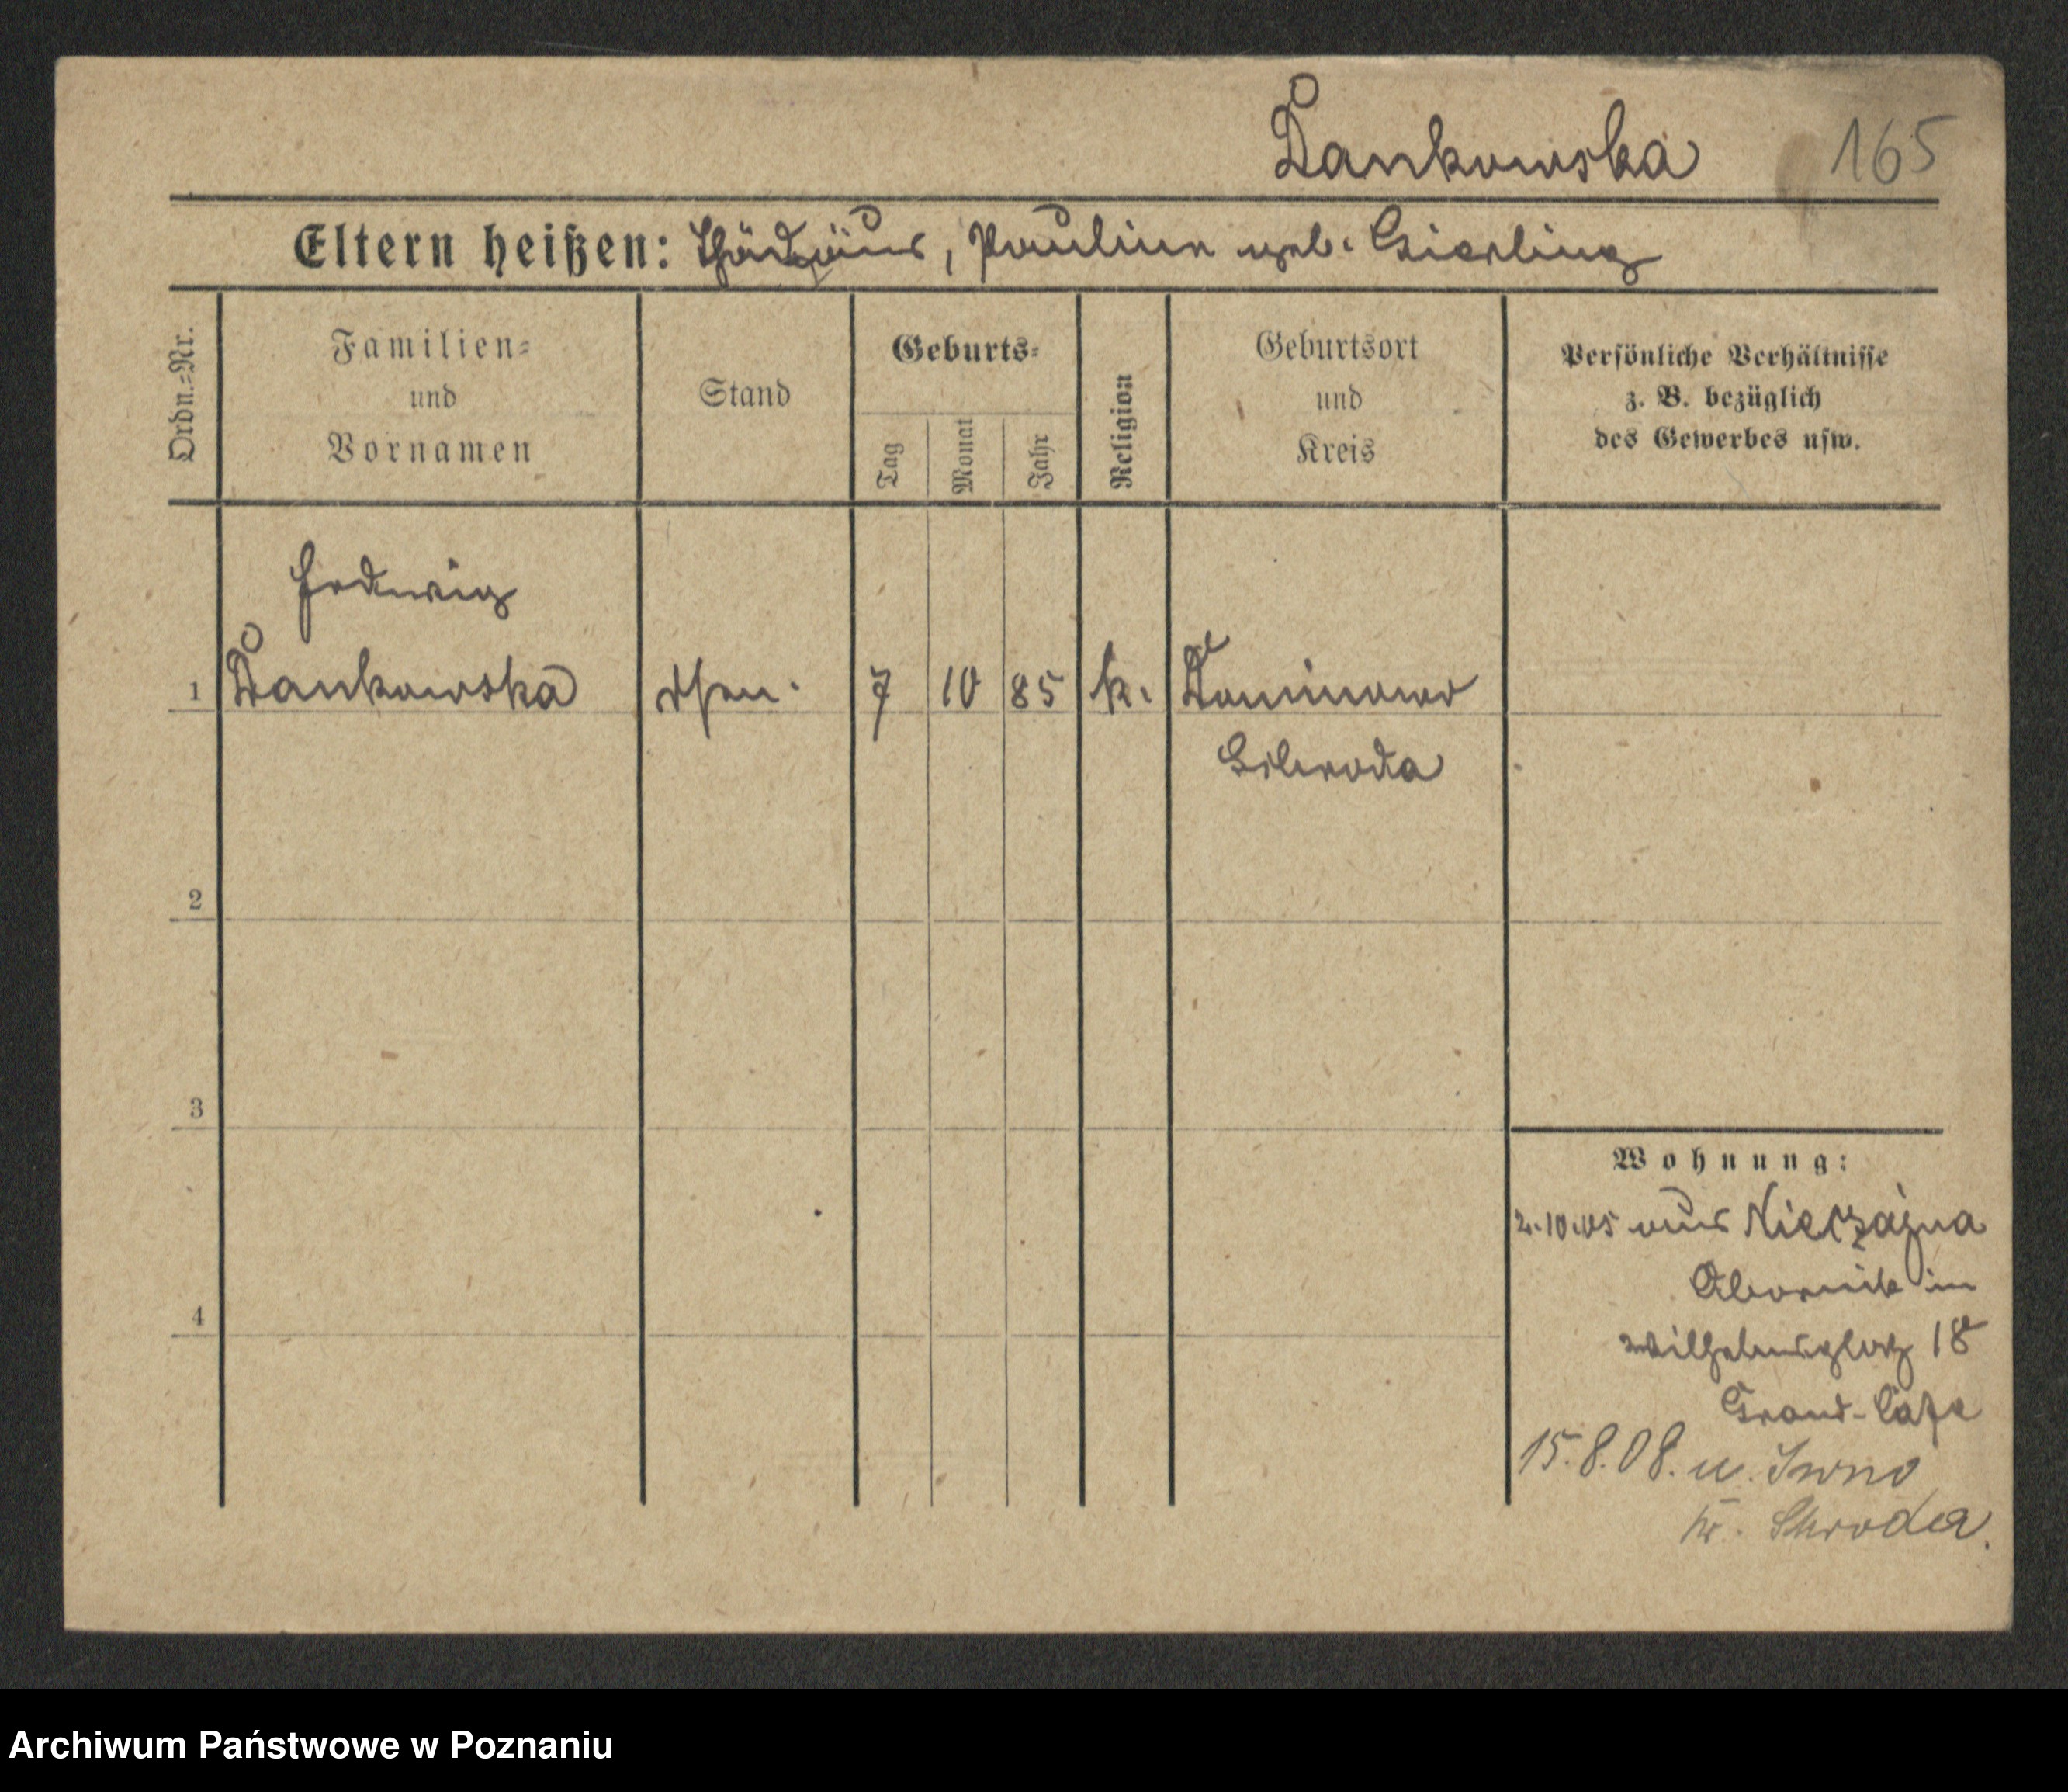 Dankowska 165
Eltern heißen: Thadäus, Pauline geb. Gierling
Ordn.=Nr.
Familien=
und
Vornamen
Stand
Geburts=
Tag
Monat
Jahr
Religion
Geburtsort
und
Kreis
Persönliche Verhältnisse
z. B. bezüglich
des Gewerbes usw.
Hedwig
1 Dankowska 7 10 85 k. Dominowo
Schroda
2
3
4
Wohnung:
2.10.05 aus Nieczajna
Obornik in
Wilhelmsplatz 18
Grand-Cafe
15.8.08. n. Iwno
Kr. Schroda.
Archiwum Państwowe w Poznaniu